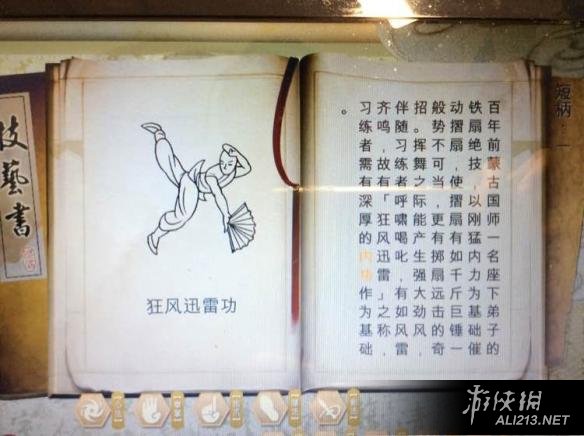 技藝書
狂风迅雷功
短柄：一
百年前蒙古国师一名座下弟子的
铁扇绝技，以刚猛内力为基础催
动摺扇，使摺扇有如千斤巨锤一
般势不可当，更有掷扇远击的奇
招。挥舞之际能产生强大劲风，
伴随习练者呼啸喝叱，有如风雷
齐鸣，故有「狂风迅雷」之称，
习练者需有深厚的内功作为基础
。
游侠网
ALI213.NET